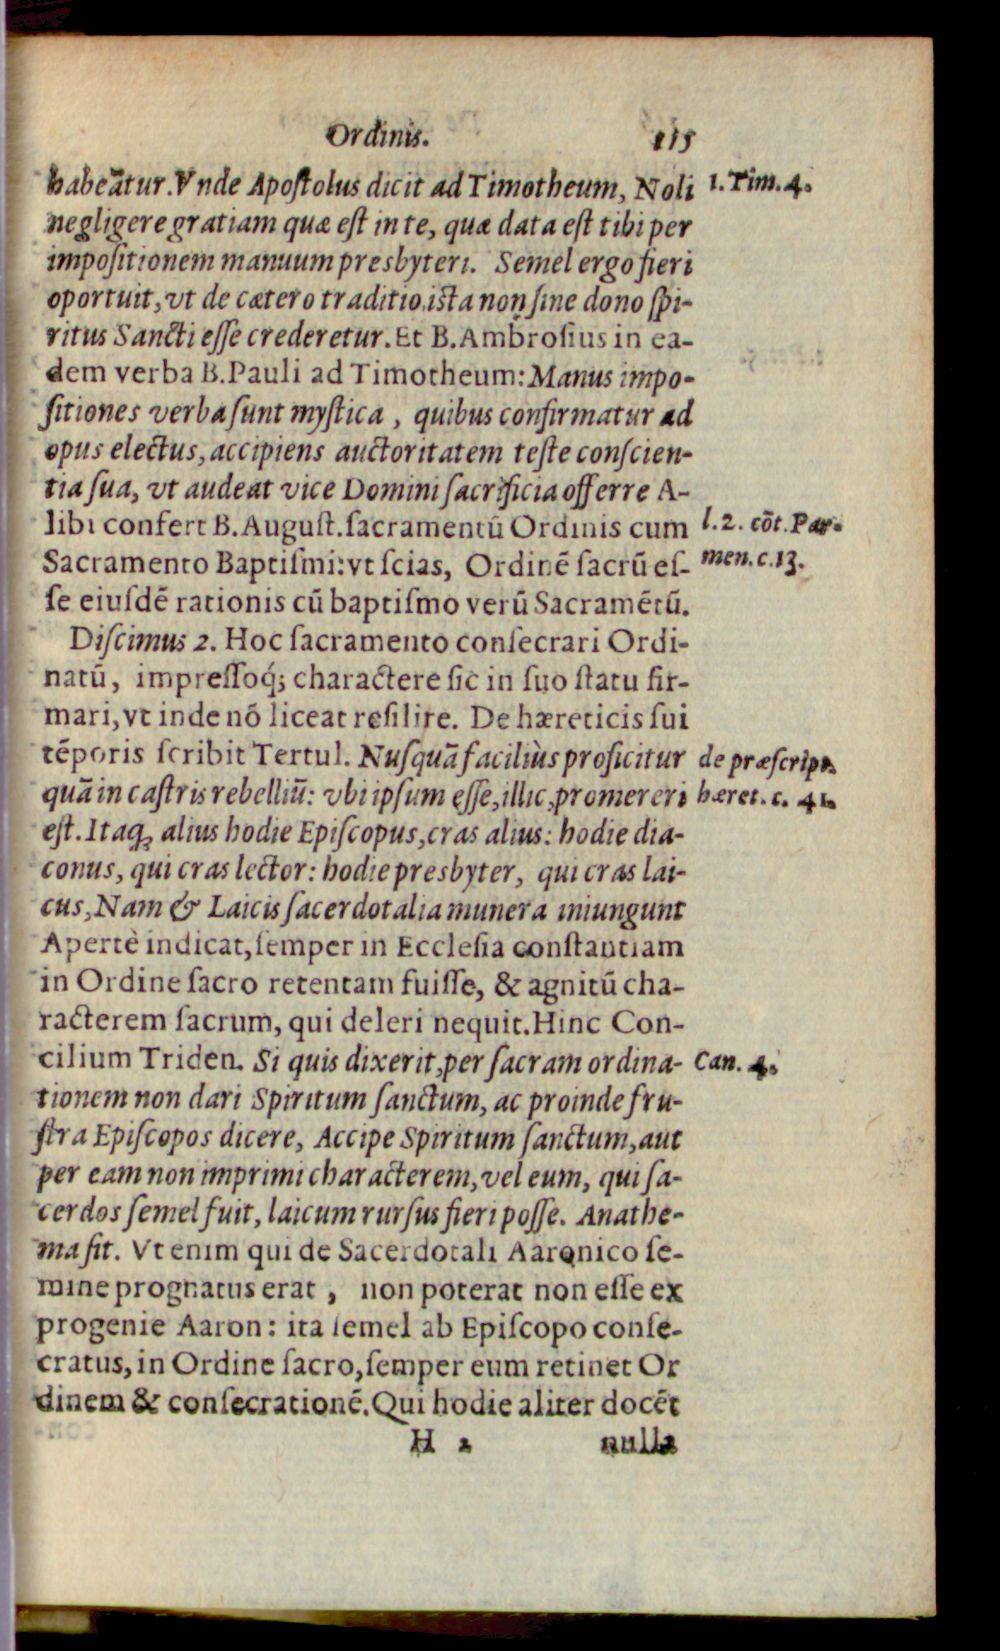 Ordinis. 115
habeãtur. Vnde Apoſtolus dicit ad Timotheum, Noli
negligere gratiam quæ eſt in te, quæ data eſt tibi per
impoſitionem manuum presbyteri. Semel ergo fieri
oportuit, vt de cætero traditio iſta non ſine dono ſpi-
ritus Sancti eſſe crederetur. Et B. Ambroſius in ea-
dem verba B. Pauli ad Timotheum: Manus impo-
ſitiones verba ſunt myſtica, quibus confirmatur ad
opus electus, accipiens auctoritatem teſte conſcien-
tia ſua, vt audeat vice Domini ſacrificia offerre A-
libi confert B. Auguſt. ſacramentũ Ordinis cum
Sacramento Baptiſmi: vt ſcias, Ordinẽ ſacrũ eſ-
ſe eiuſdẽ rationis cũ baptiſmo verũ Sacramẽtũ.
Diſcimus 2. Hoc ſacramento conſecrari Ordi-
natũ, impreſſoq́; charactere ſic in ſuo ſtatu fir-
mari, vt inde nõ liceat reſilire. De hæreticis ſui
tẽporis ſcribit Tertul. Nuſquã faciliùs proficitur
quã in caſtris rebelliũ: vbi ipſum eſſe, illic, promereri
eſt. Itaq; alius hodie Epiſcopus, cras alius: hodie dia-
conus, qui cras lector: hodie presbyter, qui cras lai-
cus, Nam & Laicis ſacerdotalia munera iniungunt
Apertè indicat, ſemper in Eccleſia conſtantiam
in Ordine ſacro retentam fuiſſe, & agnitũ cha-
racterem ſacrum, qui deleri nequit. Hinc Con-
cilium Triden. Si quis dixerit, per ſacram ordina-
tionem non dari Spiritum ſanctum, ac proinde fru-
ſtra Epiſcopos dicere, Accipe Spiritum ſanctum, aut
per eam non imprimi characterem, vel eum, qui ſa-
cerdos ſemel fuit, laicum rurſus fieri poſſe. Anathe-
ma ſit. Vt enim qui de Sacerdotali Aaronico ſe-
mine prognatus erat, non poterat non eſſe ex
progenie Aaron: ita ſemel ab Epiſcopo conſe-
cratus, in Ordine ſacro, ſemper eum retinet Or
dinem & conſecrationẽ. Qui hodie aliter docẽt
H 2 nulla
1. Tim. 4.
l. 2. cõt. Par-
men. c. 13.
de præſcript.
hæret. c. 41.
Can. 4.